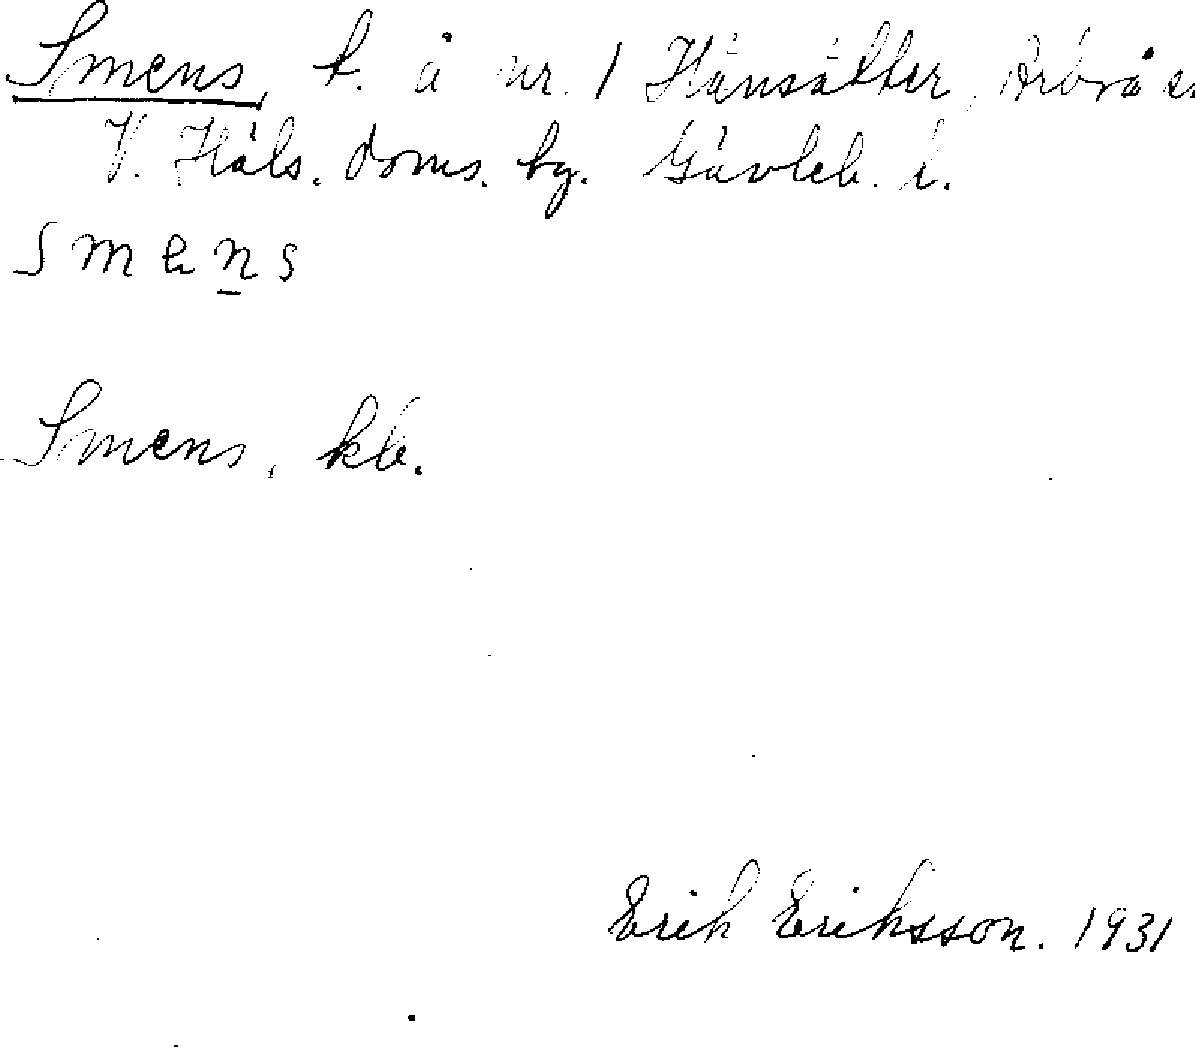 Smens, t. å nr. 1 Hänsätter, Arbrå s.
V. Häls. doms. hg. Gävleb. l.
smens
Smens, kb.
Erik Eriksson. 1931